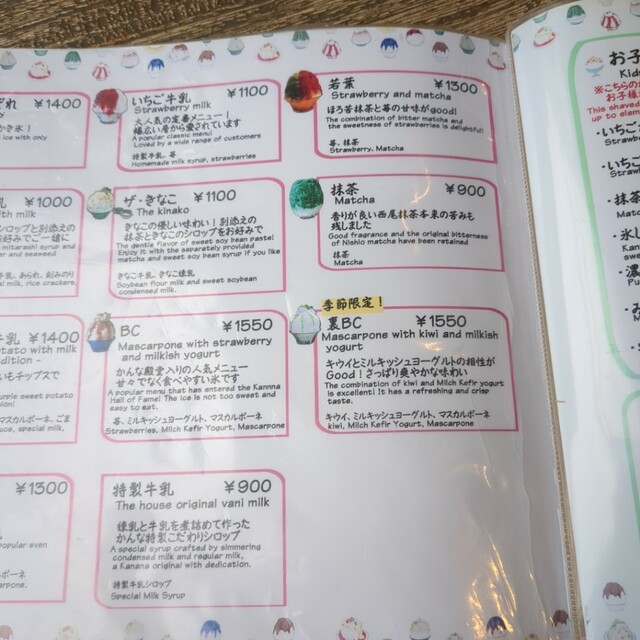 ぞれ ¥1400
かき氷！
ice with only
¥1000
with milk
シロップと刻み
お好みで一緒に
of mitarashi syrup and
er and seaweed
乳、あられ、刻みのり
milk, rice crackers,
牛乳 ¥1400
otato with milk
dition -
いもチップスで
urple sweet potato
マスカルポーネ、ごま
uce, special milk,
¥1300
popular even
ルポーネ
carpone,
いちご牛乳 ¥1100
Strawberry milk
大人気の定番メニュー！
幅広い層から愛されています
A popular classic menu!
Loved by a wide range of customers
特製牛乳、苺
Homemade milk syrup, strawberries
ザ・きなこ ¥1100
The kinako
きなこの優しい味わい！別添えの
抹茶ときなこのシロップをお好みで
The gentle flavor of sweet soy bean paste!
Enjoy it with the separately provided
matcha and sweet soy bean syrup if you like
きなこ牛乳、きなこ練乳
Soybean flour milk and sweet soybean
condensed milk.
BC ¥1550
Mascarpone with strawberry
and milkish yogurt
かんな殿堂入りの人気メニュー
甘々でなく食べやすい氷です
A popular menu that has entered the Kannna
Hall of Fame! The ice is not too sweet and
easy to eat.
苺、ミルキッシュヨーグルト、マスカルポーネ
Strawberries, Milch Kefir Yogurt, Mascarpone
特製牛乳 ¥900
The house original vani milk
練乳と牛乳を煮詰めて作った
かんな特製こだわりシロップ
A special syrup crafted by simmering
condensed milk and regular milk,
a Kanana original with dedication.
特製牛乳シロップ
Special Milk Syrup
若葉 ¥1300
Strawberry and matcha
ほろ苦抹茶と苺の甘味がgood!
The combination of bitter matcha and
the sweetness of strawberries is delightful!
苺、抹茶
Strawberry, Matcha
抹茶 ¥900
Matcha
香りが良い西尾抹茶本来の苦みも
残しました
Good fragrance and the original bitterness
of Nishio matcha have been retained
抹茶
Matcha
季節限定！
裏BC ¥1550
Mascarpone with kiwi and milkish
yogurt
キウイとミルキッシュヨーグルトの相性が
Good！さっぱり爽やかな味わい
The combination of kiwi and Milch Kefir yogurt
is excellent! It has a refreshing and crisp
taste.
キウイ、ミルキッシュヨーグルト、マスカルポーネ
kiwi, Milch Kefir Yogurt, Mascarpone
お子
Kid
※こちらの
お子様
This shaved
up to elem
・いちご
Strawb
・いちご
Straw
・抹茶
Mat
・氷し
Kan
swee
・濃
Pu